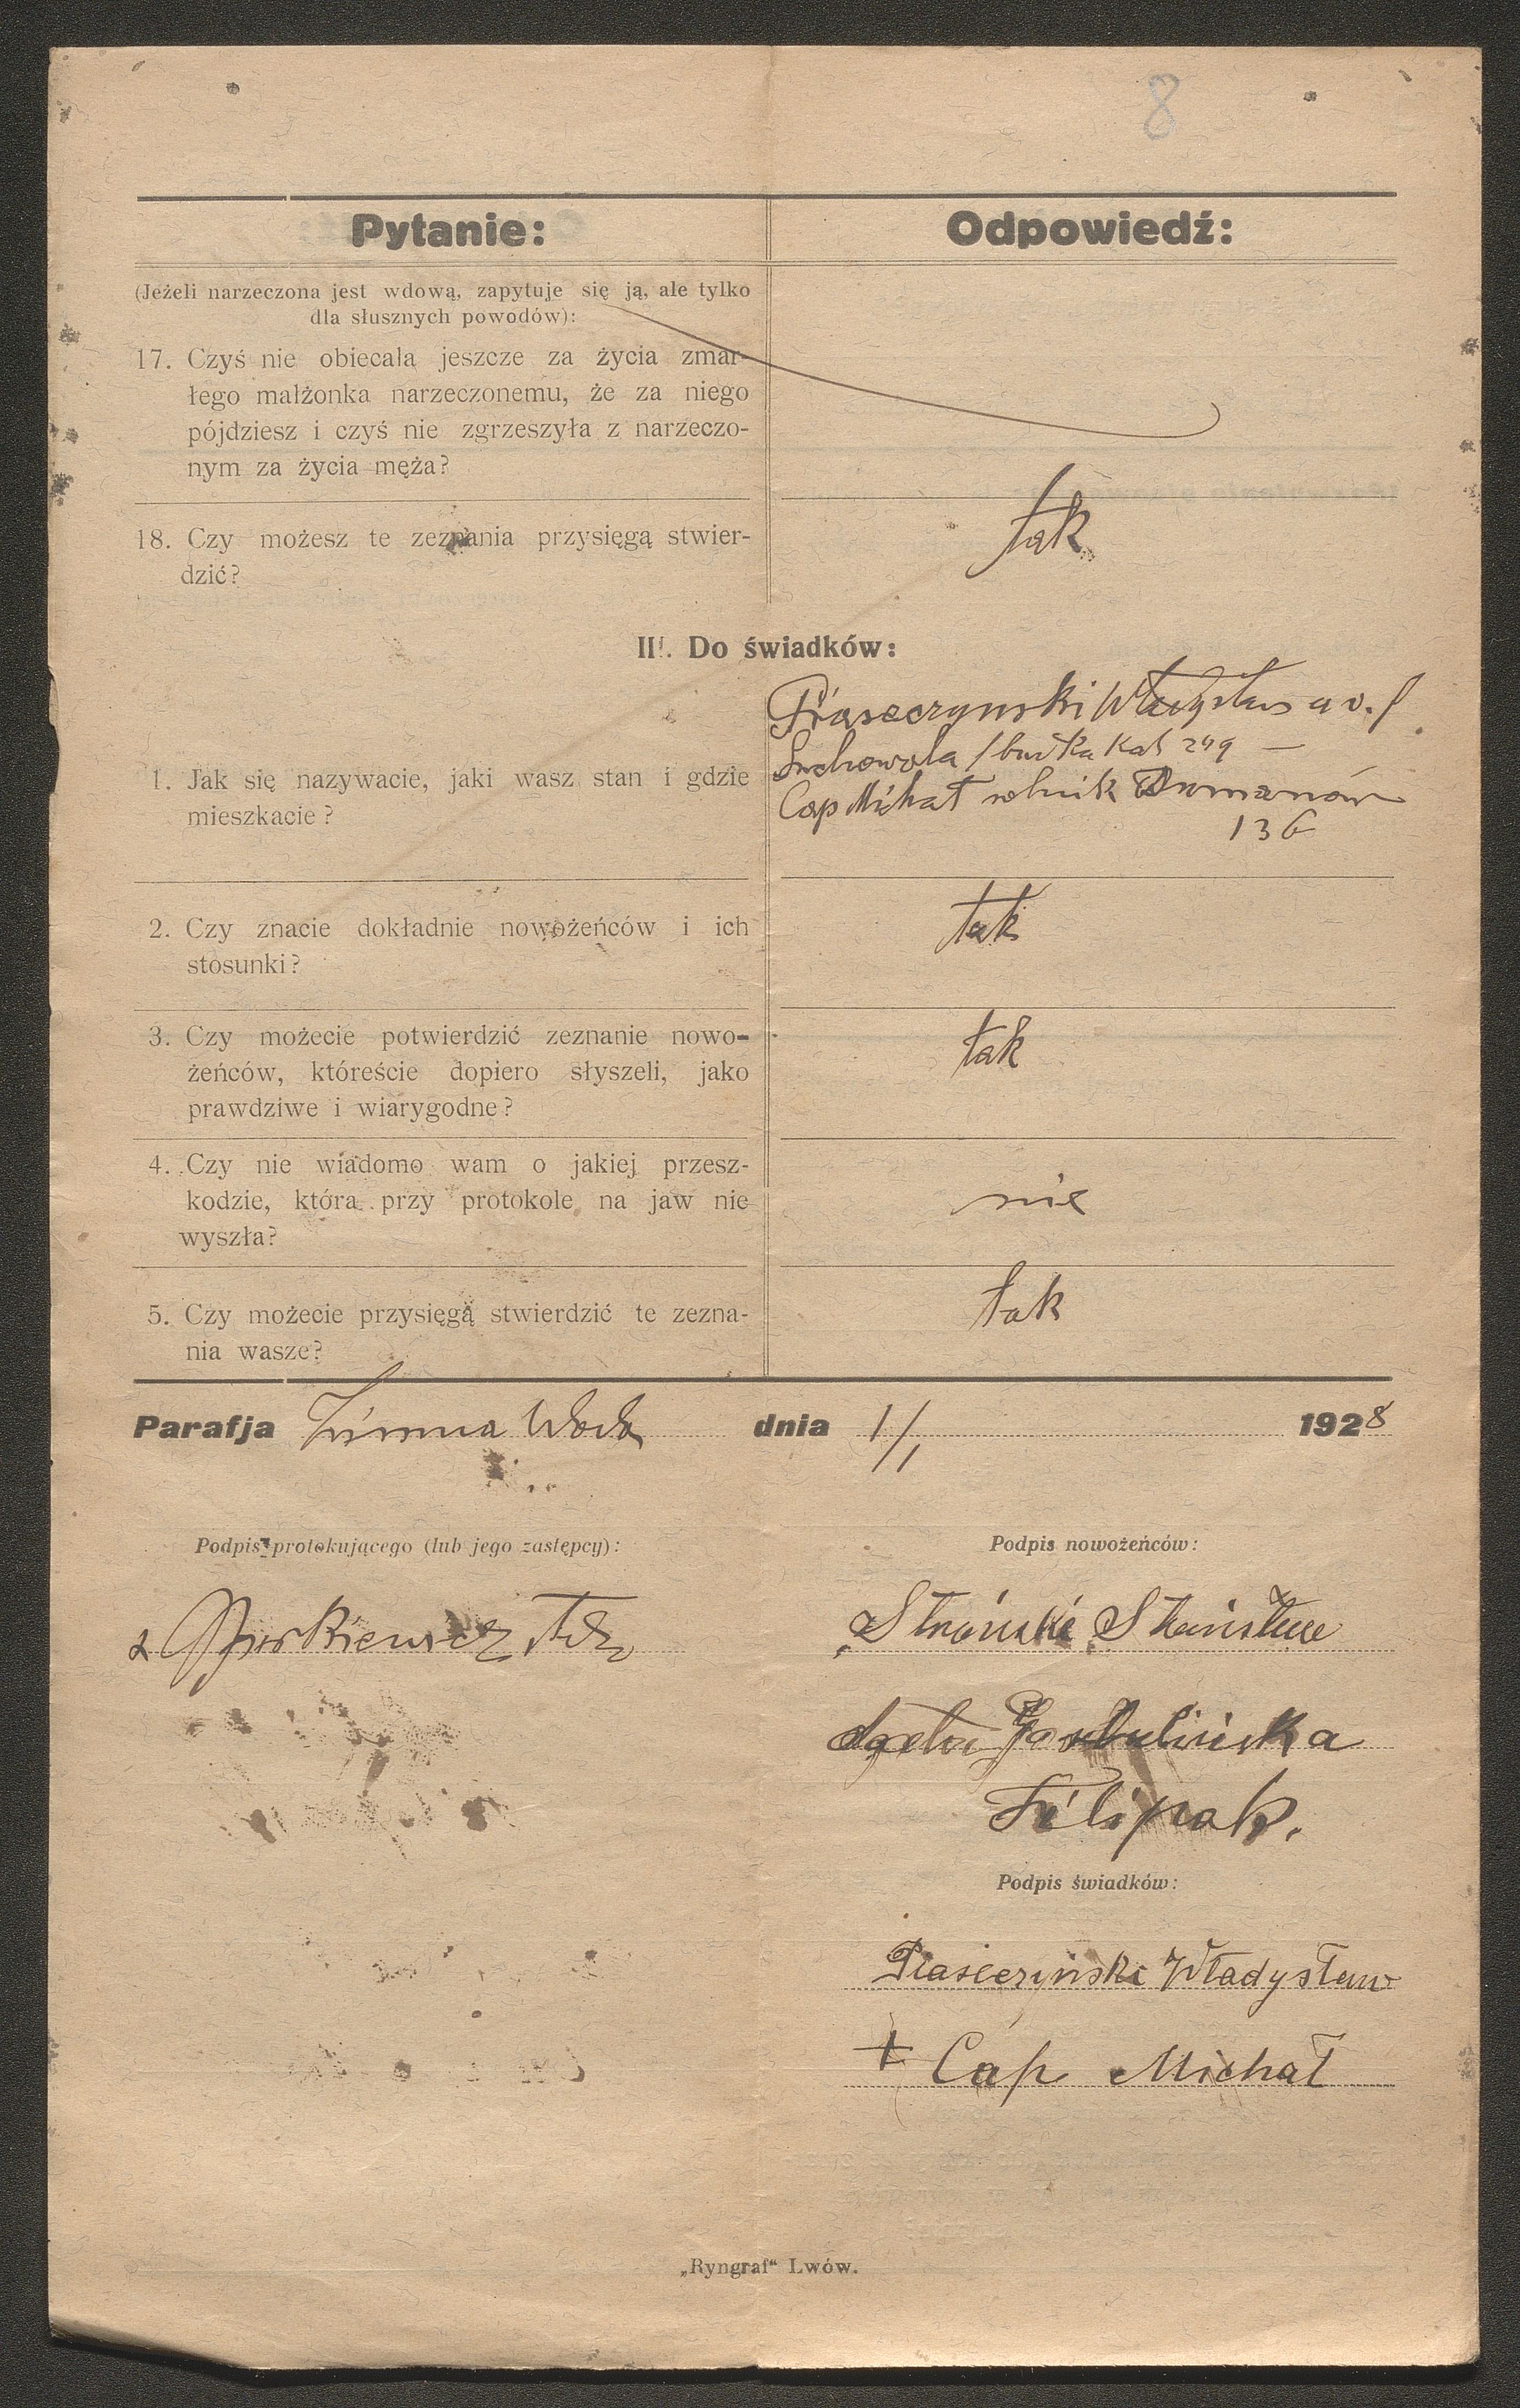 8
Pytanie:
Odpowiedź:
(Jeżeli narzeczona jest wdową, zapytuje się ją, ale tylko
dla słusznych powodów):
17. Czyś nie obiecała jeszcze za życia zmar-
łego małżonka narzeczonemu, że za niego
pójdziesz i czyś nie zgrzeszyła z narzeczo-
nym za życia męża?
18. Czy możesz te zeznania przysięgą stwier-
dzić?
tak
III. Do świadków:
1. Jak się nazywacie, jaki wasz stan i gdzie
mieszkacie?
Piaseczynski Władysław
Suchowola
Cap Michał rolnik Domanów
136
2. Czy znacie dokładnie nowożeńców i ich
stosunki?
tak
3. Czy możecie potwierdzić zeznanie nowo-
żeńców, któreście dopiero słyszeli, jako
prawdziwe i wiarygodne?
tak
4. Czy nie wiadomo wam o jakiej przesz-
kodzie, która przy protokole na jaw nie
wyszła?
nie
5. Czy możecie przysięgą stwierdzić te zezna-
nia wasze?
tak
Parafja Zimna Woda dnia 1/1 1928
Podpis protokującego (lub jego zastępcy):
Podpis nowożeńców:
Stroński Stanisław
Filipak.
Podpis świadków:
Piaseczyński Władysław
+ Cap Michał
„Ryngraf“ Lwów.